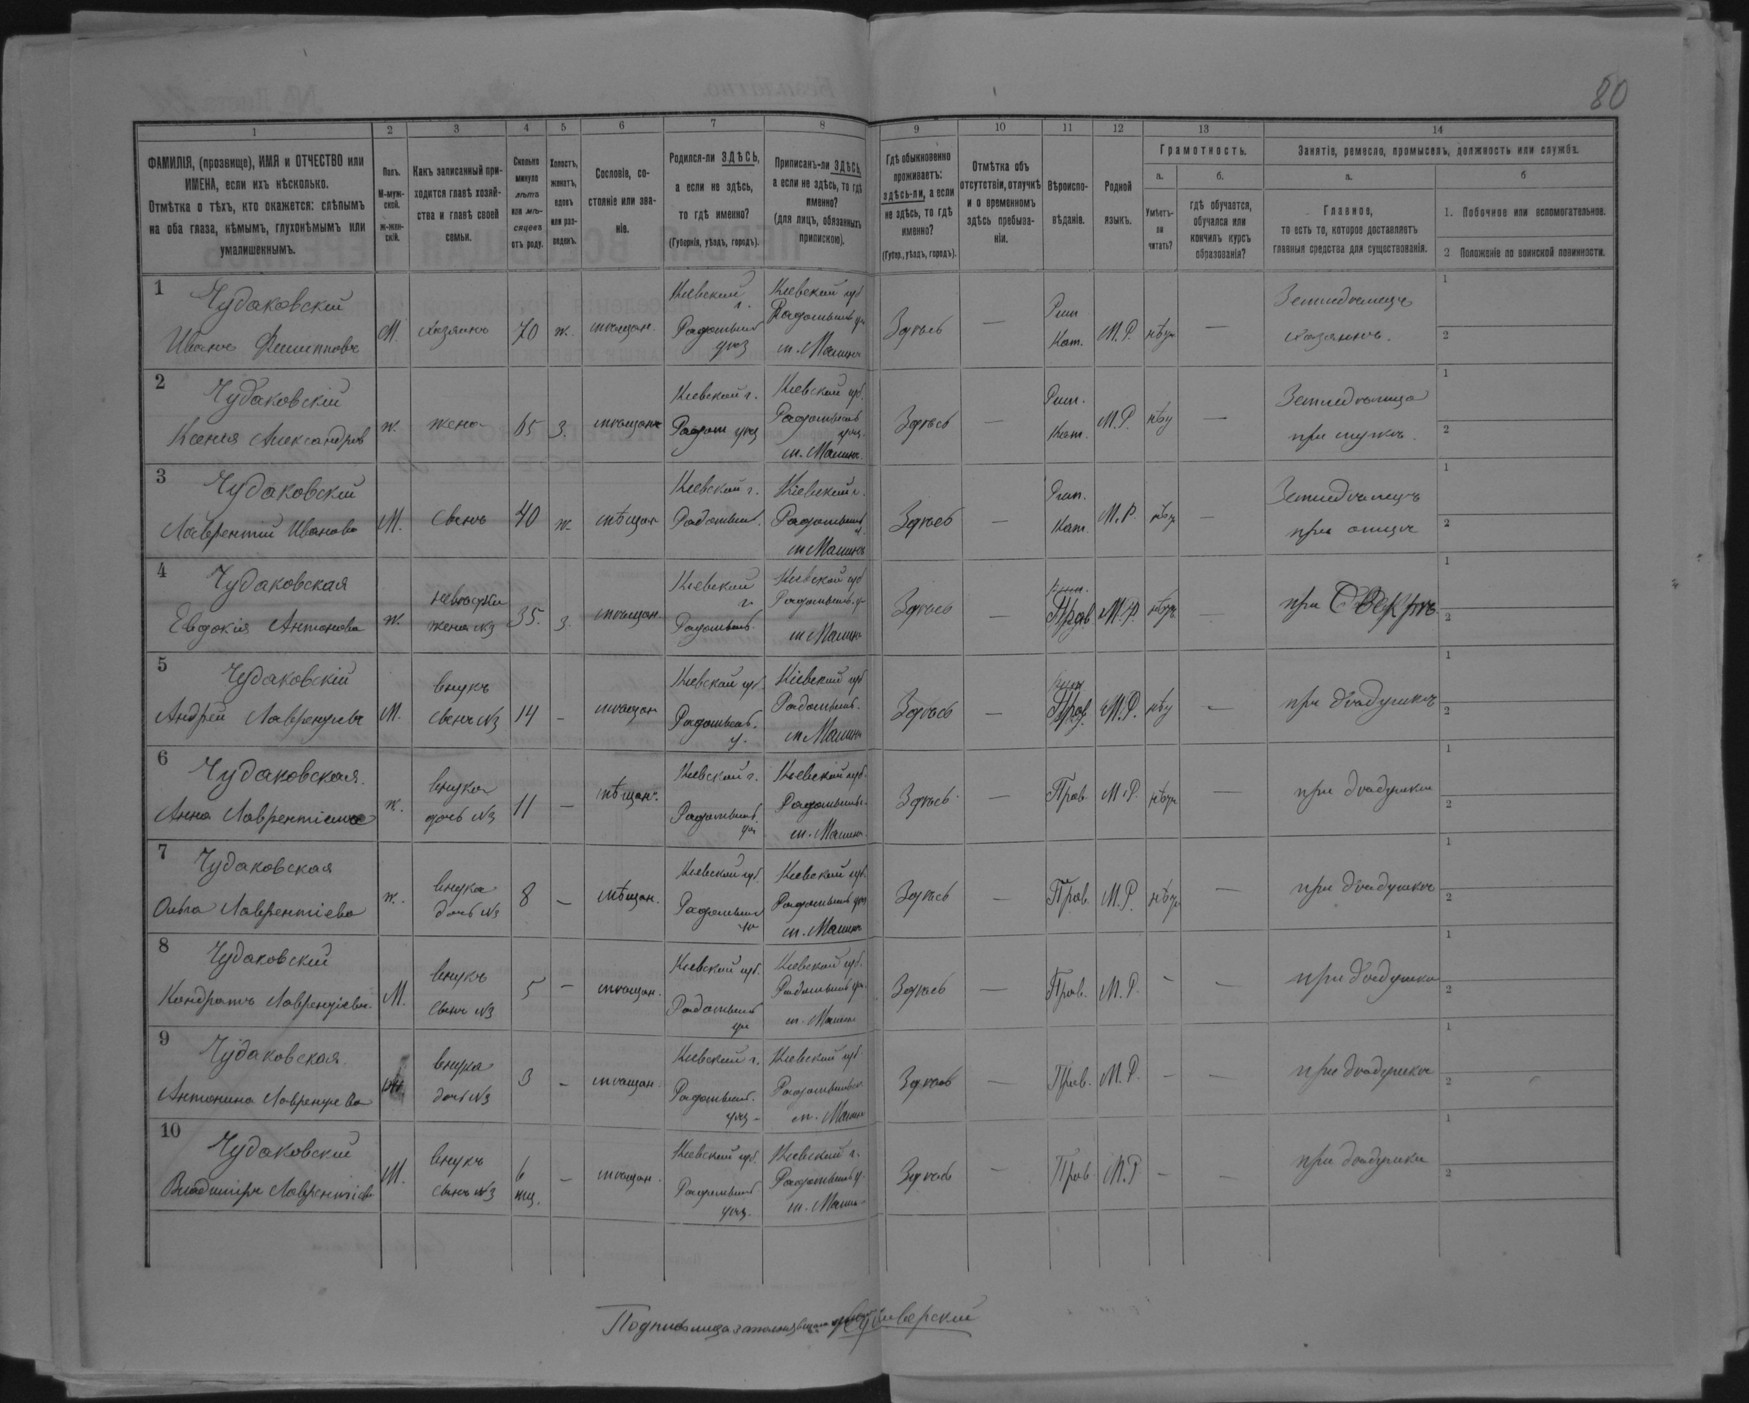 80
1 2 3 4 5 6 7 8 9 10 11 12 13 14
ФАМИЛІЯ, (прозвище), ИМЯ и ОТЧЕСТВО или
ИМЕНА, если ихъ нѣсколько.
Отмѣтка о тѣхъ, кто окажется: слѣпымъ
на оба глаза, нѣмымъ, глухонѣмымъ или
умалишеннымъ.
Полъ.
М-муж-
ской.
ж-жен-
скій.
Какъ записанный при-
ходится главѣ хозяй-
ства и главѣ своей
семьи.
Сколько
минуло
лѣтъ
или мѣ-
сяцевъ
отъ роду.
Холостъ,
женатъ,
вдовъ
или раз-
веденъ.
Сословіе, со-
стояніе или зва-
ніе.
Родился-ли ЗДѢСЬ,
а если не здѣсь,
то гдѣ именно?
(Губернія, уѣздъ, городъ).
Приписанъ-ли ЗДѢСЬ,
а если не здѣсь, то гдѣ
именно?
(для лицъ, обязанныхъ
припискою).
Гдѣ обыкновенно
проживаетъ:
здѣсь-ли, а если
не здѣсь, то гдѣ
именно?
(Губер., уѣздъ, городъ).
Отмѣтка объ
отсутствіи, отлучкѣ
и о временномъ
здѣсь пребыва-
ніи.
Вѣроиспо-
вѣданіе.
Родной
языкъ.
Грамотность.
а.
Умѣетъ-
ли
читать?
б.
гдѣ обучается,
обучался или
кончилъ курсъ
образованія?
Занятіе, ремесло, промыселъ, должность или служба.
а.
Главное,
то есть то, которое доставляетъ
главныя средства для существованія.
б
1. Побочное или вспомогательное.
2 Положеніе по воинской повинности.
1
Чудаковскій
Иванъ Филипповъ
М. хозяинъ 70 ж. мѣщан.
Кіевской г. Радомысл уѣз
Кіевской губ Радомысл у м. Малинъ
Здѣсь — Рим Кат. М.Р. нѣт —
Земледѣлецъ
хозяинъ.
1
2
2
Чудаковскій
Ксенія Александров
ж. жена 65 З. мѣщан
Кіевской г. Радом уѣз
Кіевской губ. Радомысл уѣз. м. Малинъ
Здѣсь — Рим. Кат. М.Р. нѣт —
Земледѣлица
при мужѣ.
1
2
3
Чудаковскій
Лаврентій Иванов
М. сынъ 40 ж. мѣщан
Кіевской г. Радомысл.
Кіевской г. Радомысл м Малинъ
Здѣсь — Рим. Кат. М.Р. нѣт —
Земледѣлецъ
при отцѣ
1
2
4
Чудаковская
Евдокія Антонова
ж. невѣстка жена №3 35. З. мѣщан
Кіевской г. Радомысл
Кіевской губ Радомысл. у м Малинъ
Здѣсь — Прав М.Р. нѣт —
при Свекрѣ
1
2
5
Чудаковскій
Андрей Лаврентіевъ
М. внукъ сынъ №3 14 — мѣщан
Кіевской губ. Радомысл. у.
Кіевской губ Радомысл. м Малинъ
Здѣсь — Прав. М.Р. нѣт —
при дѣдушкѣ
1
2
6
Чудаковская.
Анна Лаврентіева
ж. внука дочь №3 11 — мѣщан.
Кіевской г. Радомысл. у
Кіевской губ. Радомысл. м. Малинъ
Здѣсь — Прав. М.Р. нѣт —
при дѣдушкѣ
1
2
7
Чудаковская
Лаврентіева
ж. внука дочь №3 8 — мѣщан.
Кіевской губ. Радомысл у
Кіевской губ. Радомысл уѣз м. Малинъ
Здѣсь — Прав. М.Р. нѣт —
при дѣдушкѣ
1
2
8
Чудаковскій
Кондратъ Лаврентіевъ
М. внукъ сынъ №3 5 — мѣщан.
Кіевской губ. Радомысл у
Кіевской губ. Радомысл у м. Малинъ
Здѣсь — Прав. М.Р. — —
при дѣдушкѣ
1
2
9
Чудаковская.
Антонина Лаврентьева
внука дочь №3 3 — мѣщан.
Кіевской г. Радомысл. уѣз
Кіевской губ Радомысл м. Малинъ
Здѣсь — Прав. М.Р. — —
при дѣдушкѣ
1
2
10
Чудаковскій
Владиміръ Лаврентіев
М. внукъ сынъ №3 6 мц. — мѣщан.
Кіевской губ. Радомысл уѣз.
Кіевской г. Радомысл у. м. Малин
Здѣсь — Прав. М.Р — —
при дѣдушкѣ
1
2
Подпись лица